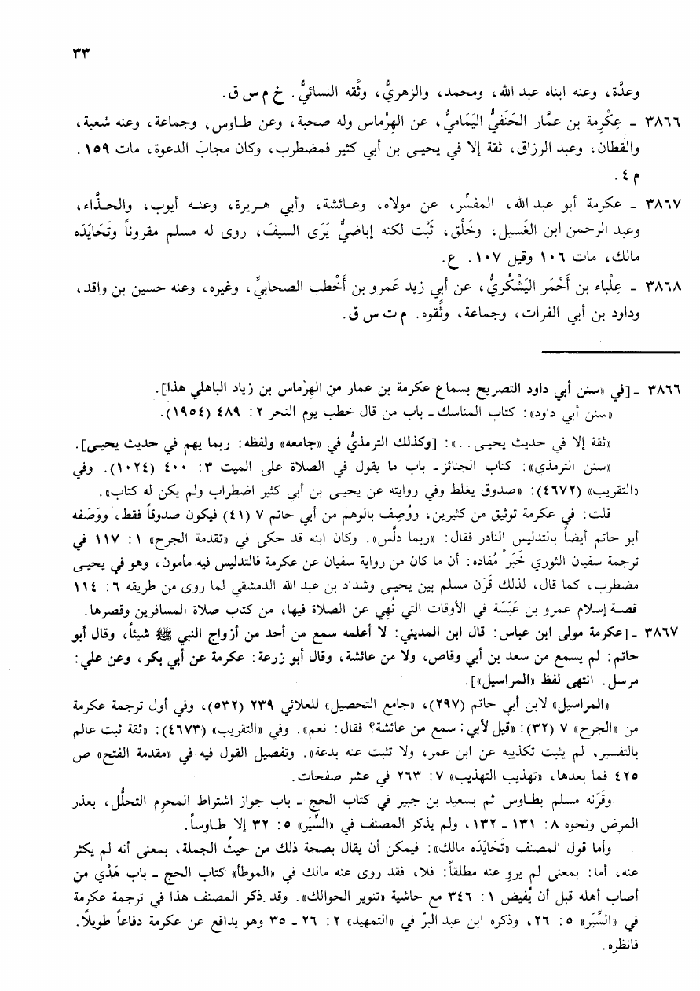 ٣٣
وعدَّة، وعنه ابناه عبد الله، ومحمد، والزهريُّ، وثَّقه النسائيُّ. خ م س ق.
٣٨٦٦ ـ عِكْرمة بن عمَّار الحَنَفيُّ اليَماميُّ، عن الهِرْماس وله صحبة، وعن طاوس، وجماعة، وعنه شعبة،
والقطان، وعبد الرزاق، ثقة إلا في يحيى بن أبي كثير فمضطرب، وكان مجابَ الدعوة، مات ١٥٩.
م ٤.
٣٨٦٧ ـ عكرمة أبو عبد الله، المفسِّر، عن مولاه، وعائشة، وأبي هريرة، وعنه أيوب، والحذَّاء،
وعبد الرحمن ابن الغَسيل، وخَلْق، ثَبْت لكنه إباضيٌّ يَرَى السيفَ، روى له مسلم مقروناً وتَحَايَدَه
مالك، مات ١٠٦ وقيل ١٠٧. ع.
٣٨٦٨ ـ عِلْباء بن أَحْمَر اليَشْكُريُّ، عن أبي زيد عَمرو بن أخْطب الصحابيِّ، وغيره، وعنه حسين بن واقد،
وداود بن أبي الفرات، وجماعة، وثَّقوه. م ت س ق.
٣٨٦٦ ـ [في «سنن أبي داود التصريح بسماع عكرمة بن عمار من الهِرْماس بن زياد الباهلي هذا].
«سنن أبي داود»: كتاب المناسك ـ باب من قال خطب يوم النحر ٢: ٤٨٩ (١٩٥٤).
«ثقة إلا في حديث يحيى...»: [وكذلك الترمذيُّ في «جامعه» ولفظه: ربما يهم في حديث يحيى].
«سنن الترمذي»: كتاب الجنائز ـ باب ما يقول في الصلاة على الميت ٣: ٤٠٠ (١٠٢٤). وفي
«التقريب» (٤٦٧٢): «صدوق يغلط وفي روايته عن يحيى بن أبي كثير اضطراب ولم يكن له كتاب».
قلت: في عكرمة توثيق من كثيرين، ووُصِف بالوهم من أبي حاتم ٧ (٤١) فيكون صدوقاً فقط، ووَصَفه
أبو حاتم أيضاً بالتدليس النادر فقال: «ربما دلَّس». وكان ابنه قد حكى في «تقدمة الجرح» ١: ١١٧ في
ترجمة سفيان الثوري خَبَراً مُفاده: أن ما كان من رواية سفيان عن عكرمة فالتدليس فيه مأمون، وهو في يحيى
مضطرب، كما قال، لذلك قَرَن مسلم بين يحيى وشداد بن عبد الله الدمشقي لما روى من طريقه ٦: ١١٤
قصة إسلام عمرو بن عَبَسَة في الأوقات التي نُهي عن الصلاة فيها، من كتاب صلاة المسافرين وقصرها.
٣٨٦٧ ـ [عكرمة مولى ابن عباس: قال ابن المديني: لا أعلمه سمع من أحد من أزواج النبي ﷺ شيئاً، وقال أبو
حاتم: لم يسمع من سعد بن أبي وقاص، ولا من عائشة، وقال أبو زرعة: عكرمة عن أبي بكر، وعن علي:
مرسل. انتهى لفظ «المراسيل»].
«المراسيل» لابن أبي حاتم (٢٩٧)، «جامع التحصيل» للعلائي ٢٣٩ (٥٣٢)، وفي أول ترجمة عكرمة
من «الجرح» ٧ (٣٢): «قيل لأبي: سمع من عائشة؟ فقال: نعم». وفي «التقريب» (٤٦٧٣): «ثقة ثبت عالم
بالتفسير، لم يثبت تكذيبه عن ابن عمر، ولا تثبت عنه بدعة». وتفصيل القول فيه في «مقدمة الفتح» ص
٤٢٥ فما بعدها، «تهذيب التهذيب» ٧: ٢٦٣ في عشر صفحات.
وقَرَنَه مسلم بطاوس ثم بسعيد بن جبير في كتاب الحج ـ باب جواز اشتراط المحرم التحلُّل، بعذر
المرض ونحوه ٨: ١٣١ ـ ١٣٢، ولم يذكر المصنف في «السِّيَر» ٥: ٣٢ إلا طاوساً.
وأما قول المصنف «تَحَايَدَه مالك»: فيمكن أن يقال بصحة ذلك من حيثُ الجملة، بمعنى أنه لم يكثر
عنه، أما: بمعنى لم يرو عنه مطلقاً: فلا، فقد روى عنه مالك في «الموطأ» كتاب الحج ـ باب هَدْي من
أصاب أهله قبل أن يُفيض ١: ٣٤٦ مع حاشية «تنوير الحوالك». وقد ذكر المصنف هذا في ترجمة عكرمة
في «السِّيَر» ٥: ٢٦، وذكره ابن عبد البرّ في «التمهيد» ٢: ٢٦ ـ ٣٥ وهو يدافع عن عكرمة دفاعاً طويلًا.
فانظره.